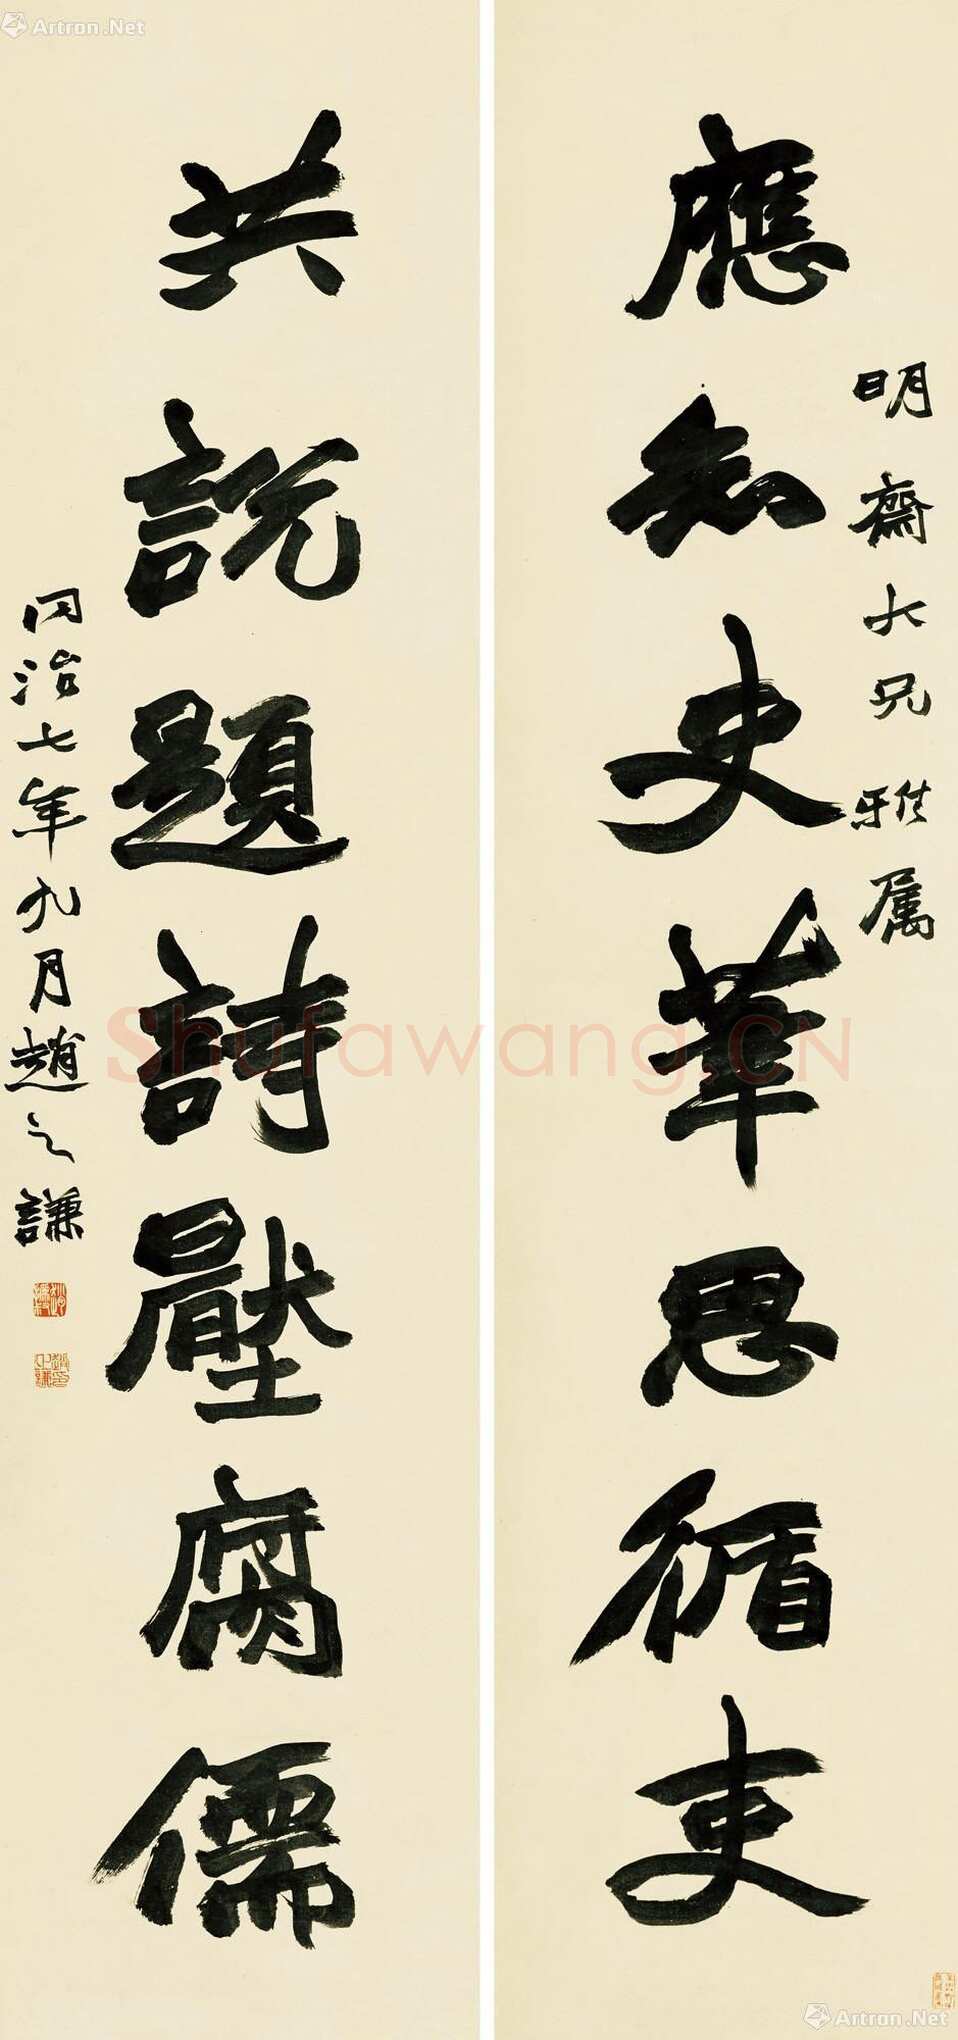 應知史筆思循吏
明齋大兄雅屬
共說題詩壓腐儒
同治七年九月趙之謙
Shufawang.CN
Artron.Net
Artron.Net